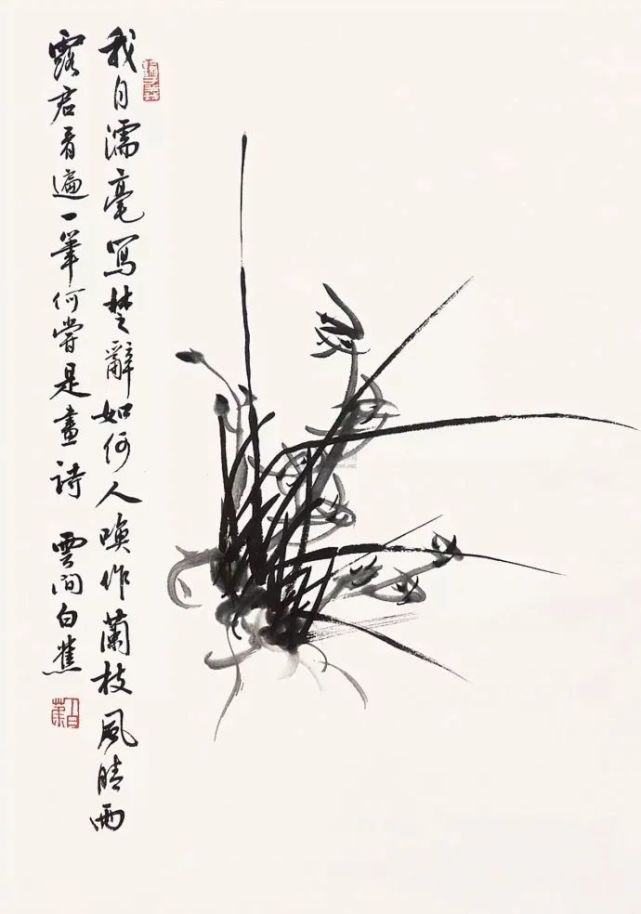 我自濡毫寫楚辭如何人喚作蘭枝風晴雨
露君看遍一筆何嘗是畫詩 雲間白蕉